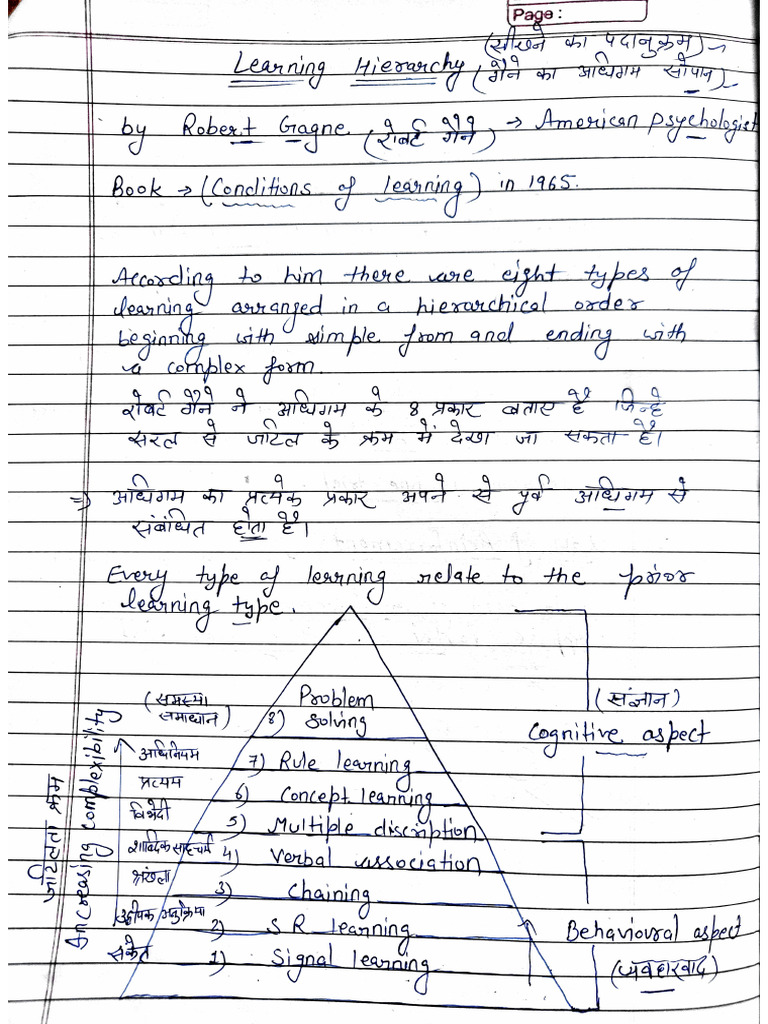 Page:
Learning Hierarchy (सीखने का पदानुक्रम)
(गैने का अधिगम सोपान)
by Robert Gagne (रोबर्ट गैने) → American Psychologist
Book → (Conditions of learning) in 1965.
According to him there are eight types of
learning arranged in a hierarchical order
beginning with simple from and ending with
a complex form.
रोबर्ट गैने ने अधिगम के 8 प्रकार बताए है जिन्हे
सरल से जटिल के क्रम में देखा जा सकता है।
⇒ अधिगम का प्रत्येक प्रकार अपने से पूर्व अधिगम से
संबंधित होता है।
Every type of learning relate to the prior
learning type.
(समस्या समाधान) 8) Problem solving
अधिनियम 7) Rule learning
प्रत्यय 6) Concept learning
विभेदी 5) Multiple discription
शाब्दिक साहचर्य 4) Verbal association
श्रंखला 3) Chaining
उद्दीपक अनुक्रिया 2) S R learning
संकेत 1) Signal learning
जटिलता क्रम
Increasing complexibility
(संज्ञान)
Cognitive aspect
Behavioural aspect
(व्यवहारवाद)